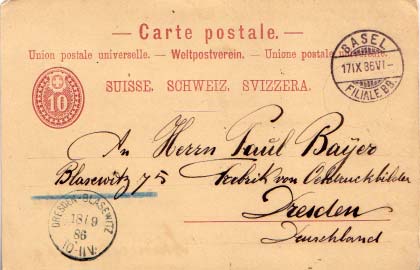 — Carte postale. —
Union postale universelle. — Weltpostverein. — Unione postale universale.
SUISSE. SCHWEIZ. SVIZZERA.
10
BASEL
17 IX 86 VI –
FILIALE B B.
An Herrn Paul Bayer
Blasewitz 75 Fabrik von Oeldruckbilder
Dresden
Deutschland
DRESDEN-BLASEWITZ
18/9
86